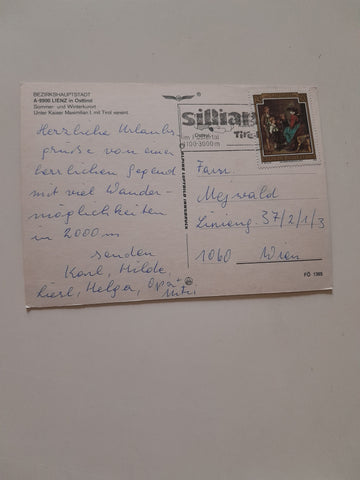 BEZIRKSHAUPTSTADT
A-9900 LIENZ in Osttirol
Sommer- und Winterkurort
Unter Kaiser Maximilian I. mit Tirol vereint.
Herzliche Urlaubs-
grüße von einer
herrlichen Gegend
mit viel Wander-
möglichkeiten
in 2000 m
senden
Karl, Hilde,
Liesl, Helga, Opa +
sillian
Osttirol
1100-3000 m
Fam.
Mejvald
Linieng. 37/2/1/3
1060 Wien
FÖ 1365